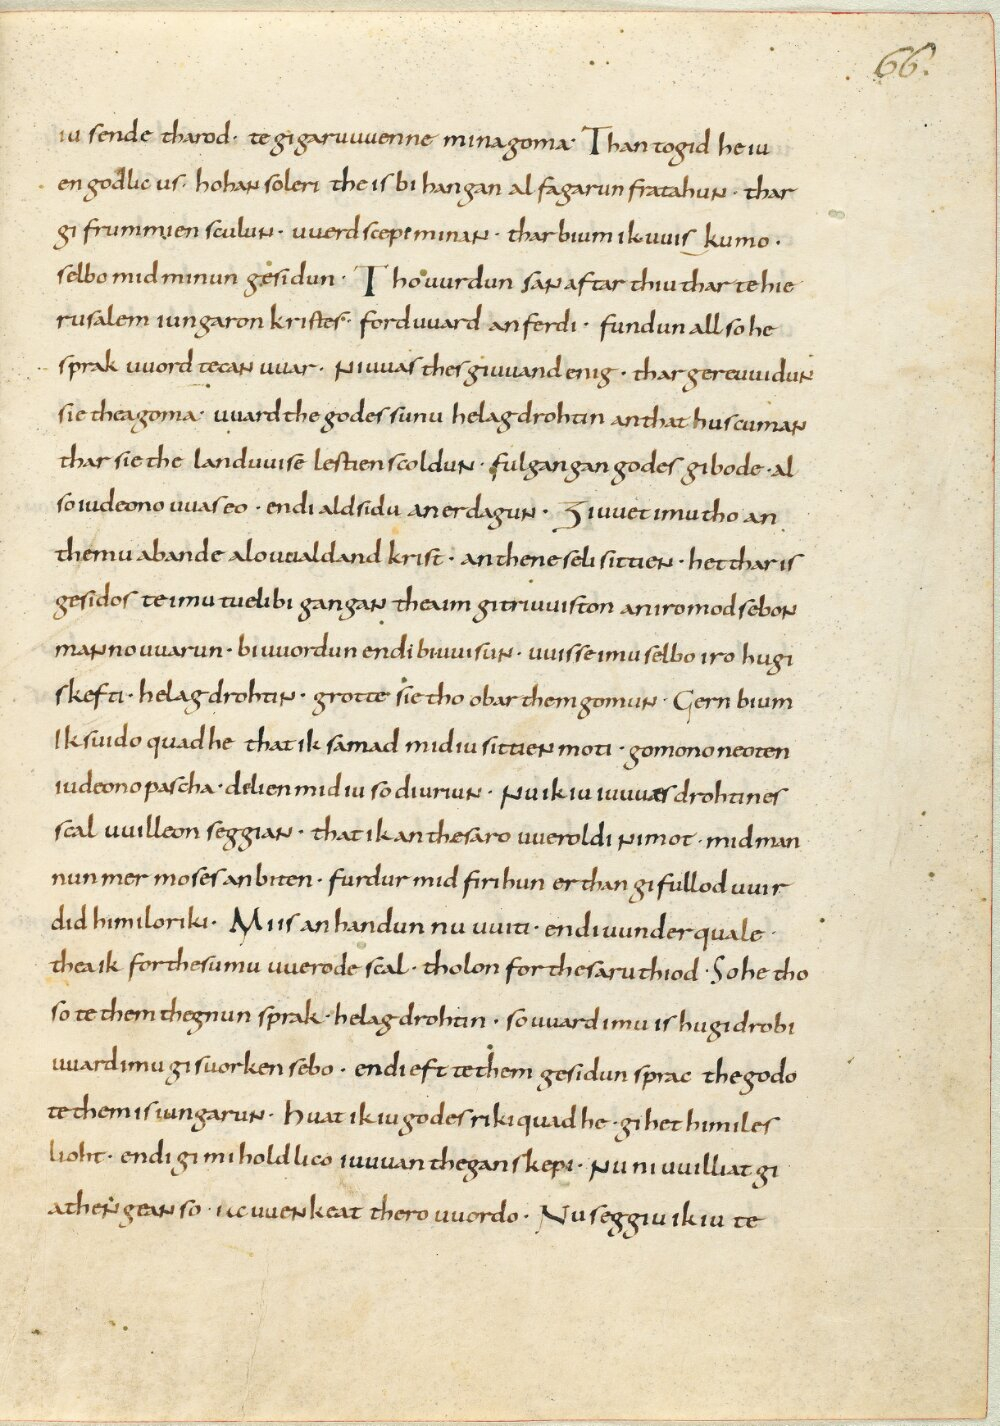 66.
iu sende tharod · te gigaruuuenne mina goma · Than togid he iu
en godlic us · hohan soleri the is bihangan al fagarun fratahun · thar
gi frummien sculun · uuerdscepi minan · thar bium ik uuis kumo ·
selbo mid minun gesidun · Tho uurdun san aftar thiu thar te hie
rusalem iungaron kristes · forduuard an ferdi · fundun all so he
sprak uuord tecan uuar · ni uuas thes giuuand enig · thar gereuuidun
sie thea goma · uuard the godes sunu helag drohtin an that hus cuman
thar sie the landuuise lestien scoldun · fulgangan godes gibode · al
so iudeono uuas eo · endi aldsidu an erdagun · Giuuet imu tho an
themu abande alouualdand krist · an thene seli sittien · het thar is
gesidos te imu tuelibi gangan thea im gitriuuiston an iro modsebon
manno uuarun · bi uuordun endi bi uuisun · uuisse imu selbo iro hugi
skefti · helag drohtin · grotte sie tho obar them gomun · Gern bium
Ik suido quad he that ik samad mid iu sittien moti · gomono neoten
iudeono pascha · delien mid iu so diuriun · Nu ik iu iuuuæs drohtines
scal uuilleon seggian · that ik an thesaro uueroldi ni mot · mid man
nun mer moses anbiten · furdur mid firihun er than gifullod uuir
did himilo riki · Mi is an handun nu uuiti · endi uunderquale ·
thea ik for thesumu uuerode scal · tholon for thesaru thiod · So he tho
so te them thegnun sprak · helag drohtin · so uuard imu is hugi drobi
uuard imu gisuorken sebo · endi eft te them gesidun sprac the godo
te them is iungarun · huat ik iu godes riki quad he · gihet himiles
lioht · endi gi mi holdlico iuuuan theganskepi · Nu ni uuilliat gi
athengean so · ac uuenkeat thero uuordo · Nu seggiu ik iu te